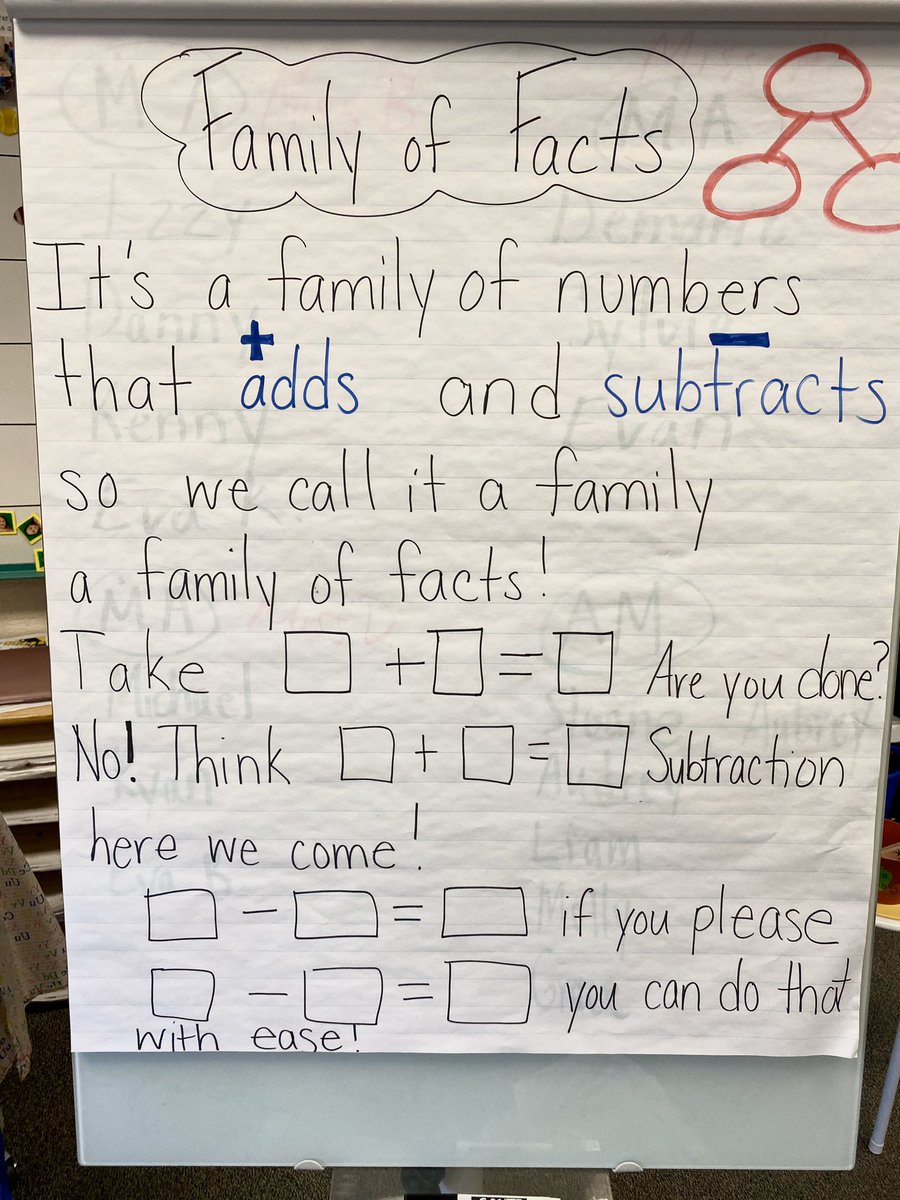 Family of Facts
It's a family of numbers
+ −
that adds and subtracts
so we call it a family
a family of facts!
Take □ + □ = □ Are you done?
No! Think □ + □ = □ Subtraction
here we come!
□ − □ = □ if you please
□ − □ = □ you can do that
with ease!